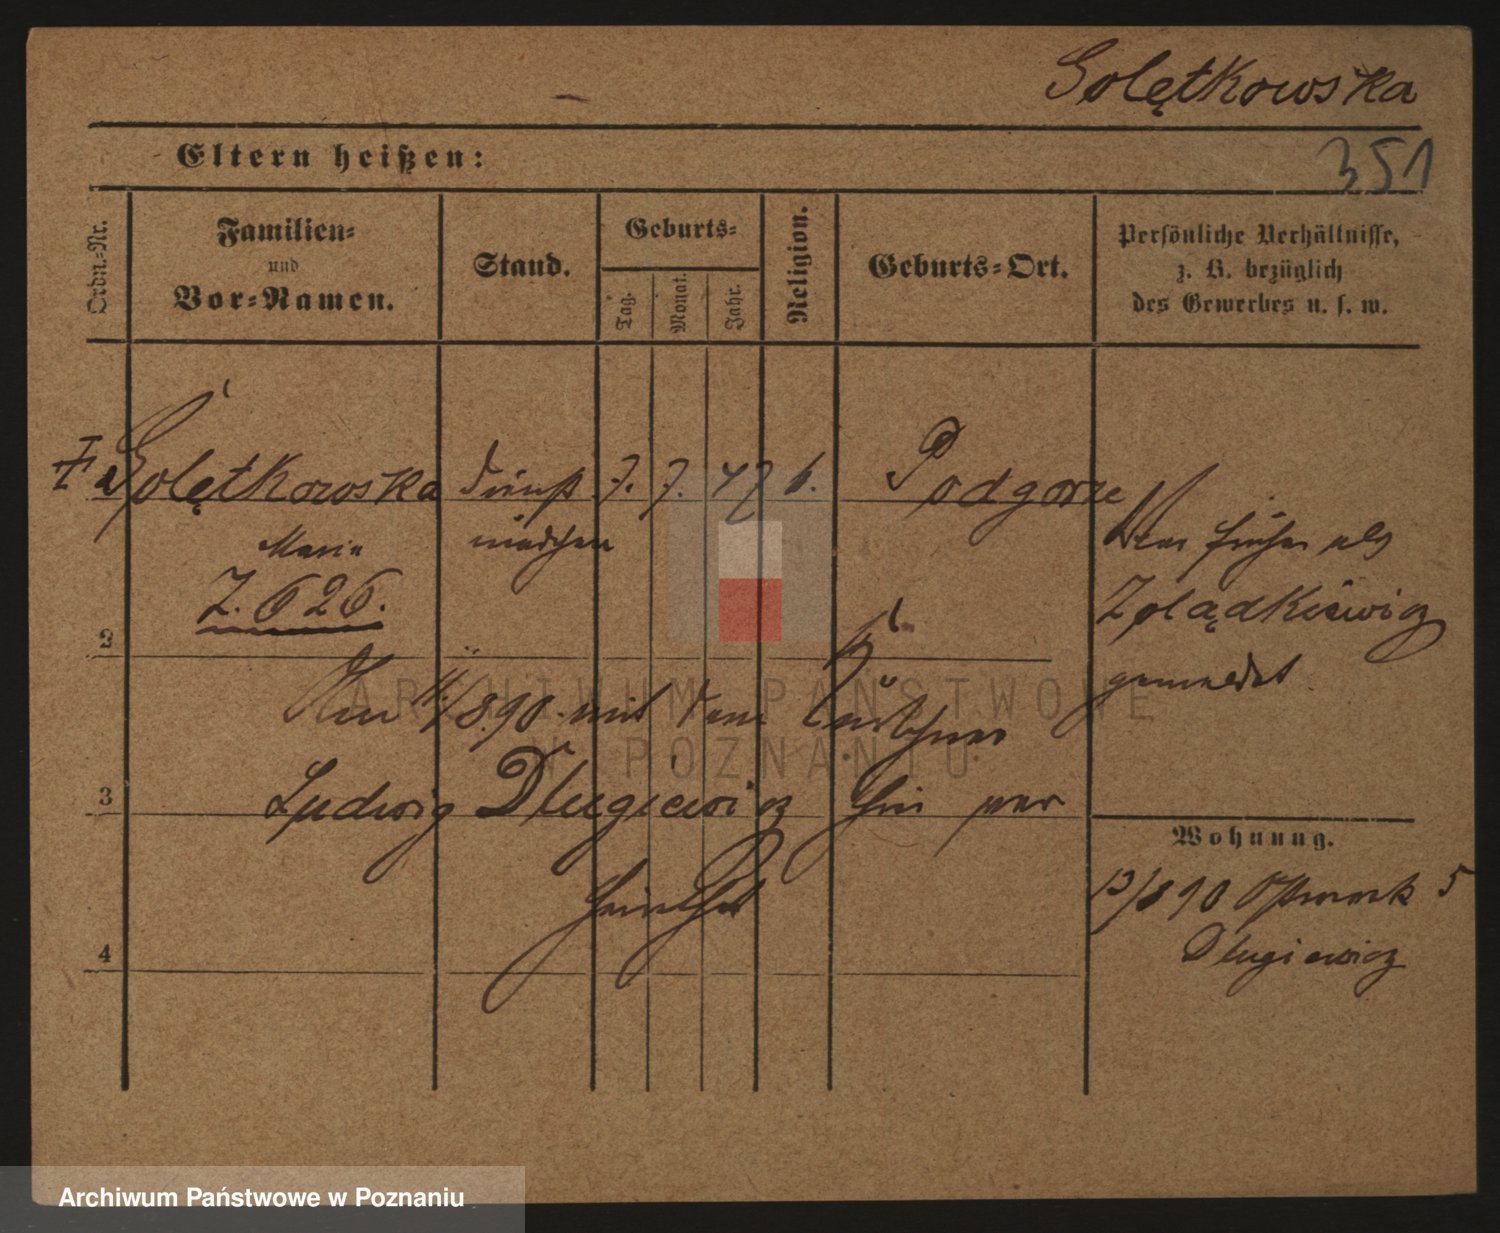 Golętkowska
Eltern heißen:
351
Ordn.-Nr.
Familien-
und
Vor-Namen.
Stand.
Geburts-
Tag.
Monat.
Jahr.
Religion.
Geburts-Ort.
Persönliche Verhältnisse,
z. B. bezüglich
des Gewerbes u. s. w.
Golętkowska Dienst 7. 7. 47 k. Podgorze
Marie mädchen
Z. 626.
War früher als
Żolądkiewicz
gemeldet
2
Am /8.90. mit dem
3
Ludwig Dlugiewicz
4
Wohnung.
13/8 90 5
Dlugiewicz
ARCHIWUM PAŃSTWOWE
W POZNANIU
Archiwum Państwowe w Poznaniu